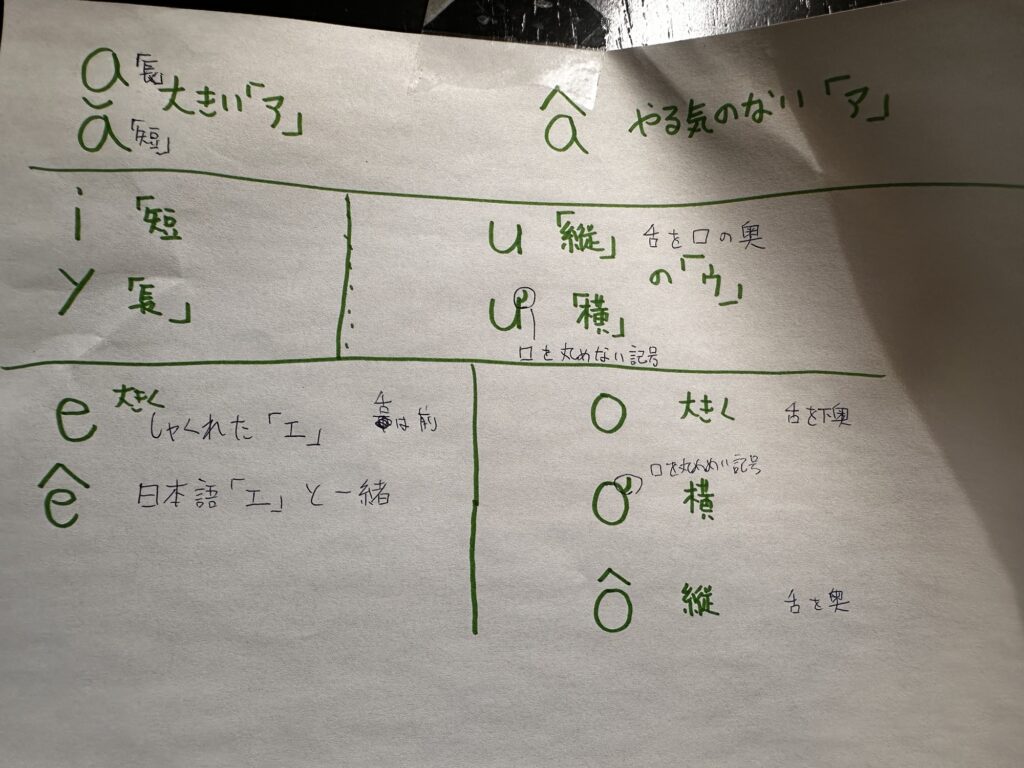 a「長」
大きい「ア」
ă「短」
â やる気のない「ア」
i 「短
y 「長」
u 「縦」 舌を口の奥
の「ウ」
ư 「横」
口を丸めない記号
e 大きく
しゃくれた「エ」 舌は前
ê 日本語「エ」と一緒
o 大きく 舌を下奥
口を丸めない記号
ơ 横
ô 縦 舌を奥